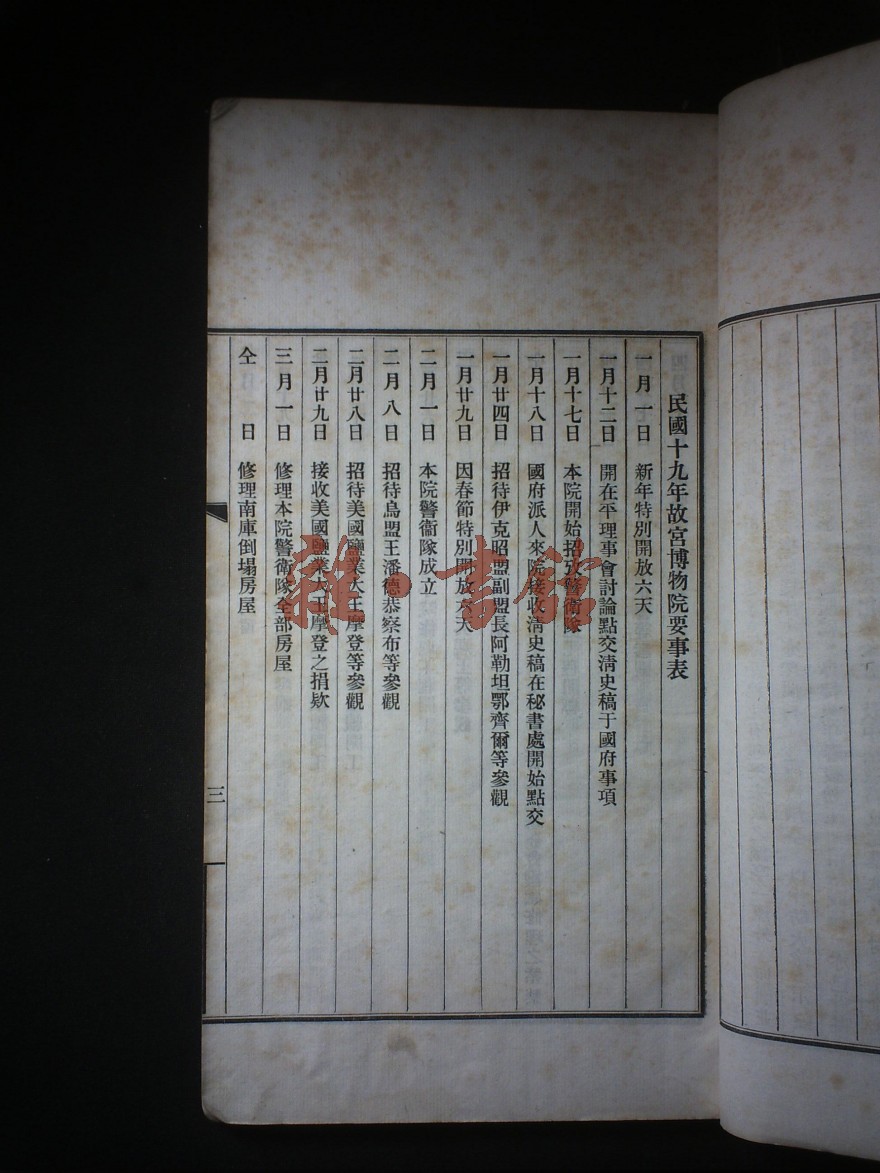 民國十九年故宮博物院要事表
一月一日 新年特別開放六天
一月十二日 開在平理事會討論點交清史稿于國府事項
一月十七日 本院開始招攷警衛隊
一月十八日 國府派人來院接收清史稿在秘書處開始點交
一月廿四日 招待伊克昭盟副盟長阿勒坦鄂齊爾等參觀
一月廿九日 因春節特別開放六天
二月一日 本院警衞隊成立
二月八日 招待烏盟王潘德恭察布等參觀
二月廿八日 招待美國鹽業大王摩登等參觀
二月廿九日 接收美國鹽業大王摩登之捐欵
三月一日 修理本院警衛隊全部房屋
仝日 修理南庫倒塌房屋
三
雜·書館